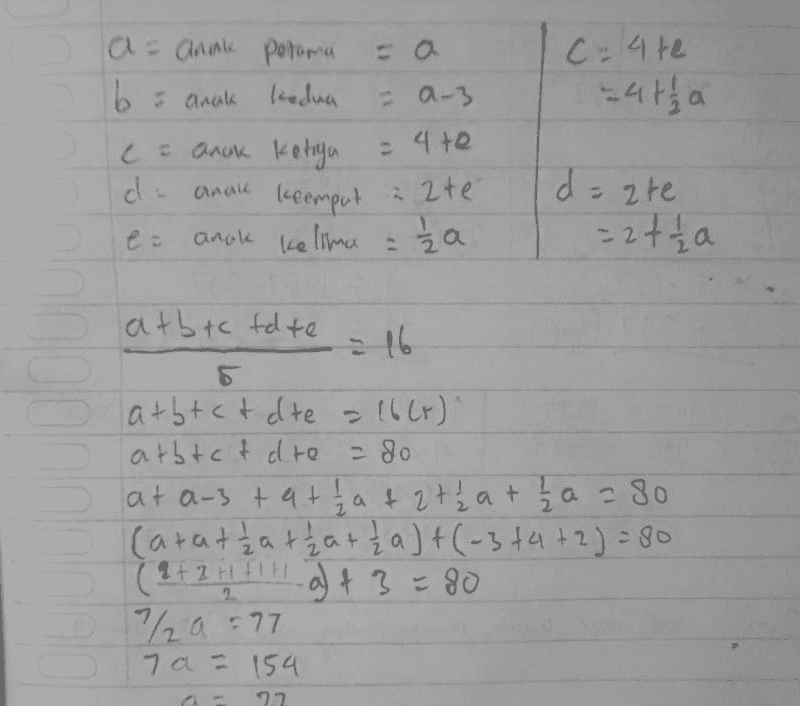 a = anak petama = a
b = anak kedua = a-3
c = anak ketiga = 4+e
d = anak keempat = 2+e
e = anak kelima = ½a
c = 4+e
= 4+½a
d = 2+e
= 2+½a
a+b+c+d+e / 5 = 16
a+b+c+d+e = 16(5)
a+b+c+d+e = 80
a+a-3+4+½a+2+½a+½a = 80
(a+a+½a+½a+½a)+(-3+4+2) = 80
(2+2+1+1+1 / 2 a)+3 = 80
7/2 a = 77
7a = 154
a = 22